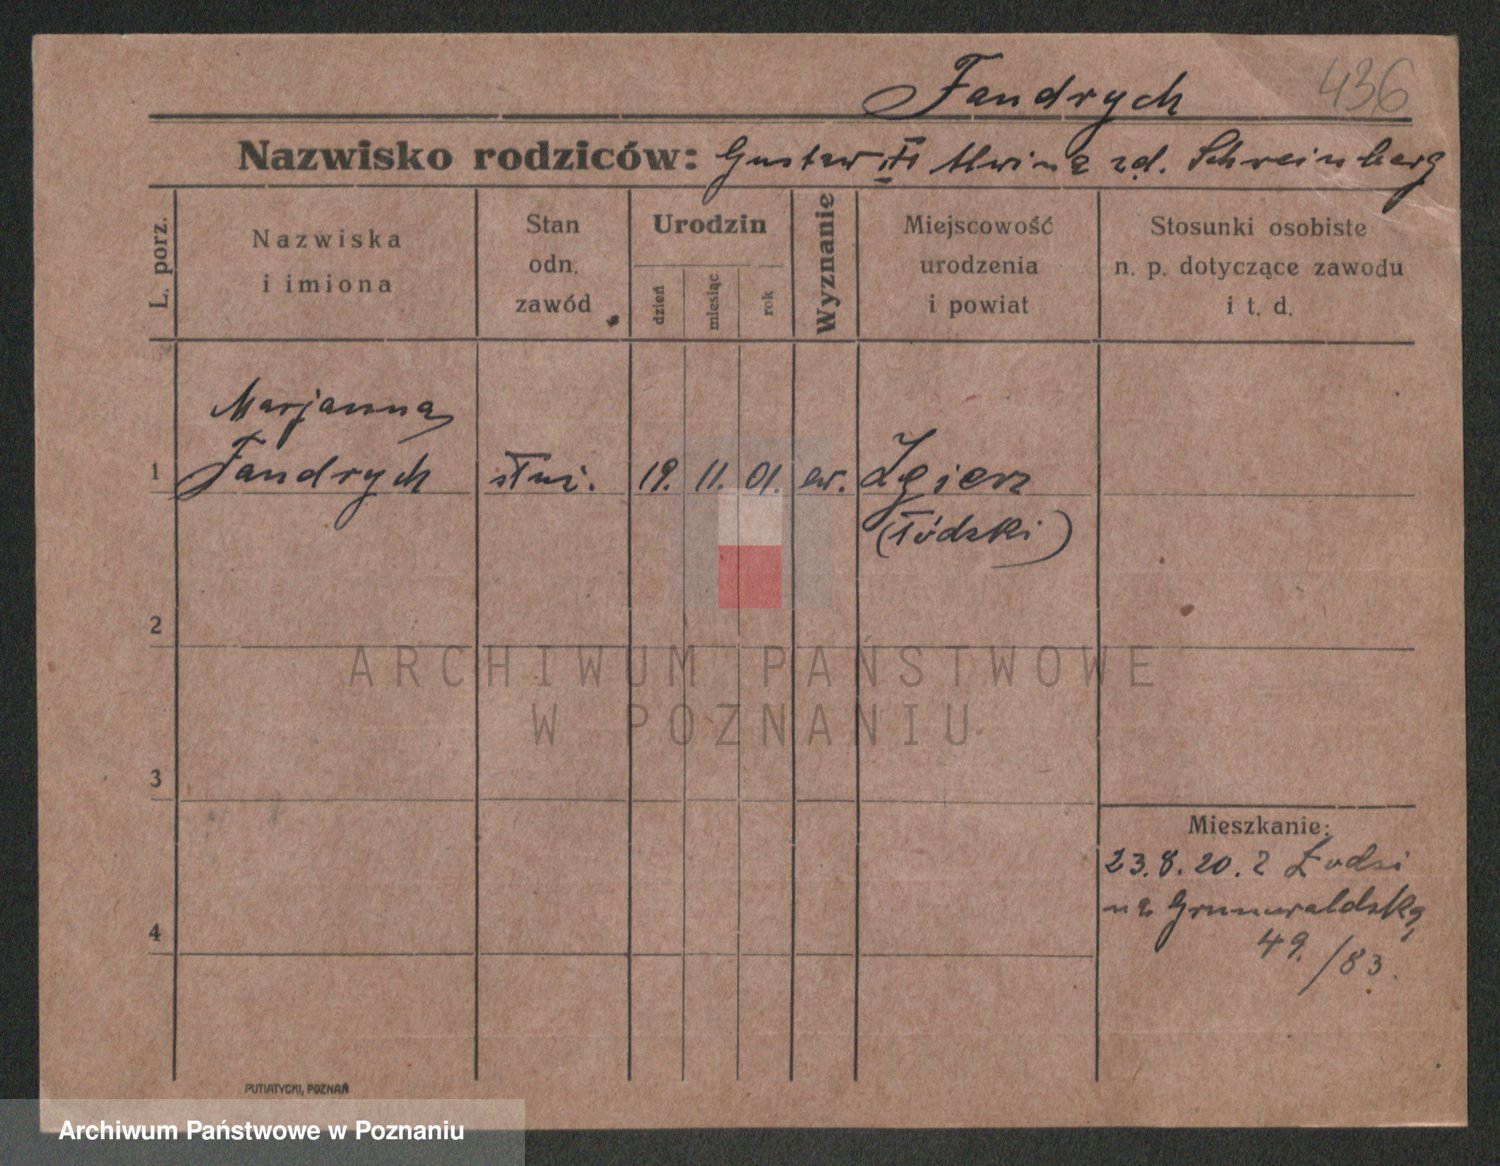 Fandrych
436
Nazwisko rodziców: Gustaw i Alwina zd. Schreinberg
L. porz.
Nazwiska
i imiona
Stan
odn.
zawód
Urodzin
dzień
miesiąc
rok
Wyznanie
Miejscowość
urodzenia
i powiat
Stosunki osobiste
n. p. dotyczące zawodu
i t. d.
Marjanna
1 Fandrych służ. 19. 11. 01. ew. Zgierz
(łódzki)
2
ARCHIWUM PAŃSTWOWE
W POZNANIU
3
Mieszkanie:
23.8.20. z Łodzi
na Grunwaldską
4
49. /83.
PUTIATYCKI, POZNAŃ
Archiwum Państwowe w Poznaniu